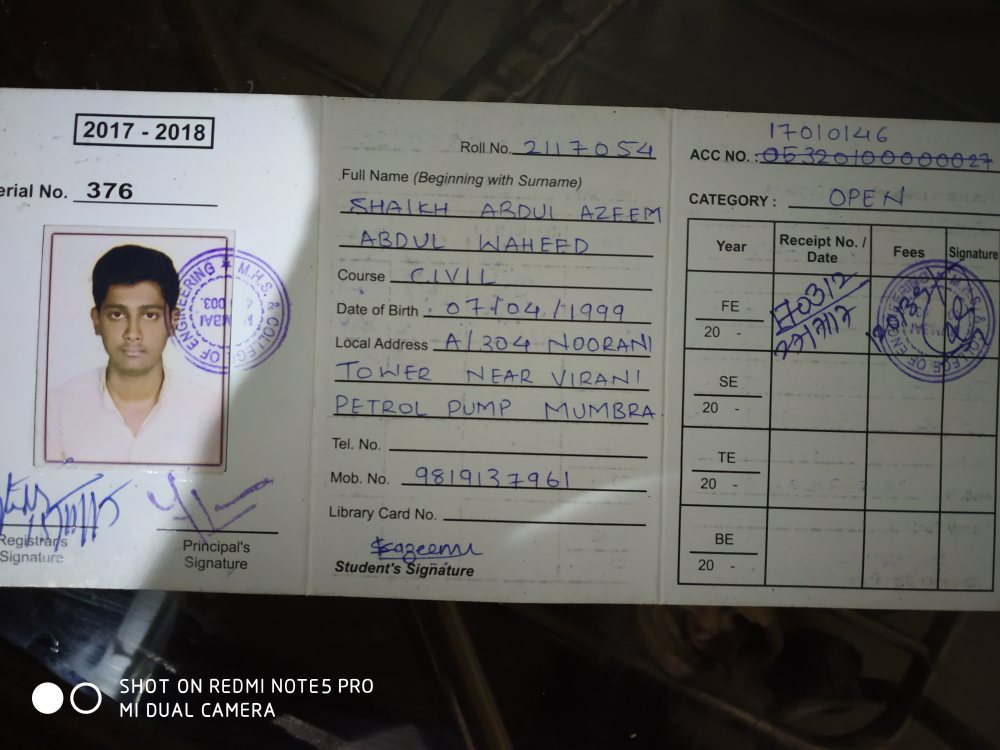 2017 - 2018
erial No. 376
Registrar's
Signature
Principal's
Signature
Roll No. 2117054
Full Name (Beginning with Surname)
SHAIKH ABDUL AZEEM
ABDUL WAHEED
Course CIVIL
Date of Birth 07/04/1999
Local Address A/304 NOORANI
TOWER NEAR VIRANI
PETROL PUMP MUMBRA.
Tel. No.
Mob. No. 9819137961
Library Card No.
Skazeemu
Student's Signature
17010146
ACC NO. : 05320100000027
CATEGORY : OPEN
Year Receipt No. / Date Fees Signature
FE 170312
20 - 27/7/17
SE
20 -
TE
20 -
BE
20 -
M.H.S. & COLLEGE OF ENGINEERING
SHOT ON REDMI NOTE5 PRO
MI DUAL CAMERA